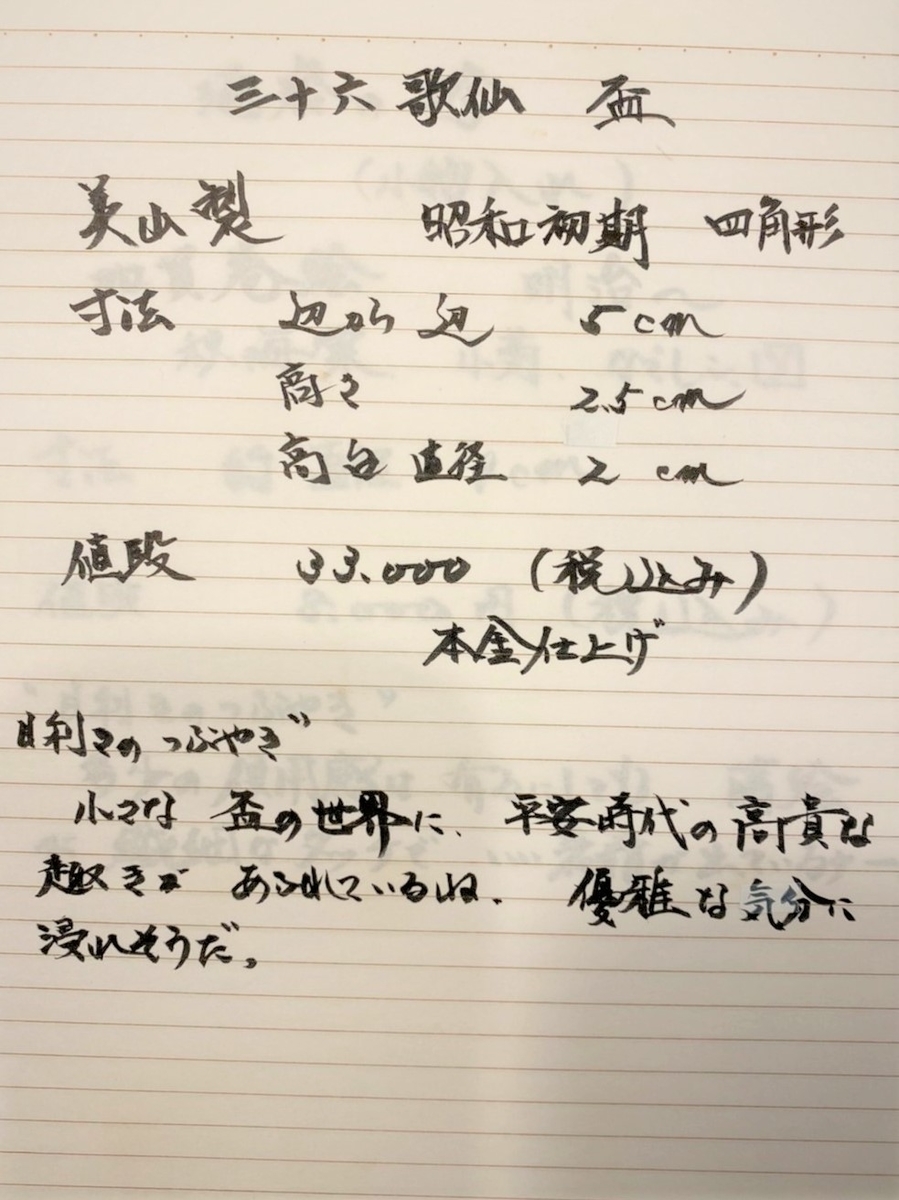 三十六歌仙 盃
美山製 昭和初期 四角形
寸法 辺から辺 5cm
高さ 2.5cm
高台直径 2cm
値段 33.000 (税込み)
本金仕上げ
目利きのつぶやき"
小さな盃の世界に、平安時代の高貴な
趣きがあふれているね、優雅な気分に
浸れそうだ。